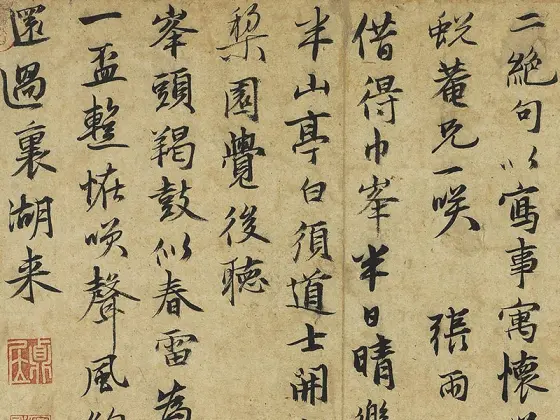 二絕句以寫事寓懷
蛻菴兄一咲 張雨
借得巾峯半日晴樂
半山亭白須道士開
棃園覺後聽
峯頭羯鼓似春雷為
一盃恠咲聲風約
還過裏湖来